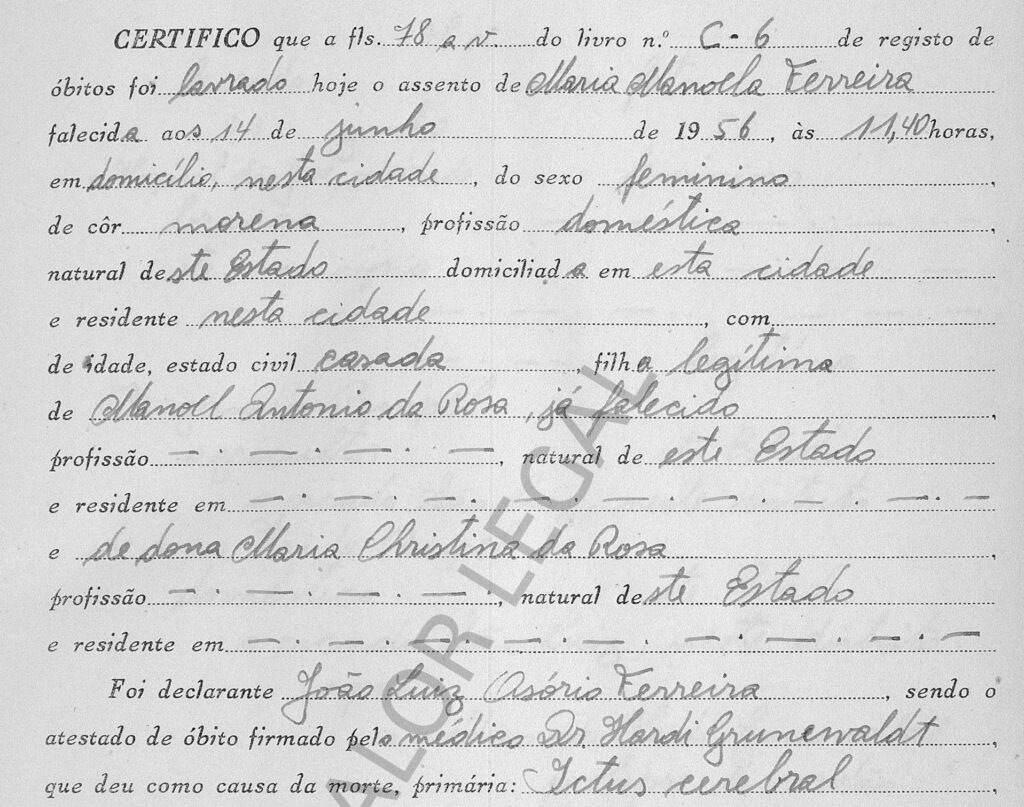 CERTIFICO que a fls. 78 a v. do livro n.º C-6 de registo de
óbitos foi lavrado hoje o assento de Maria Manoella Ferreira
falecida aos 14 de junho de 1956, às 11,40 horas,
em domicílio, nesta cidade, do sexo feminino,
de côr morena, profissão doméstica,
natural deste Estado domiciliada em esta cidade
e residente nesta cidade, com
de idade, estado civil casada, filha legítima
de Manoel Antonio da Rosa, já falecido,
profissão — . — . — . —, natural de este Estado
e residente em — . — . — . — . — . — . — . —
e de dona Maria Christina da Rosa,
profissão — . — . — . — ., natural deste Estado
e residente em — . — . — . — . — . — . — . —
Foi declarante João Luiz Osório Ferreira, sendo o
atestado de óbito firmado pelo médico Dr. Hardi Grunewaldt,
que deu como causa da morte, primária: Ictus cerebral,
VALOR LEGAL